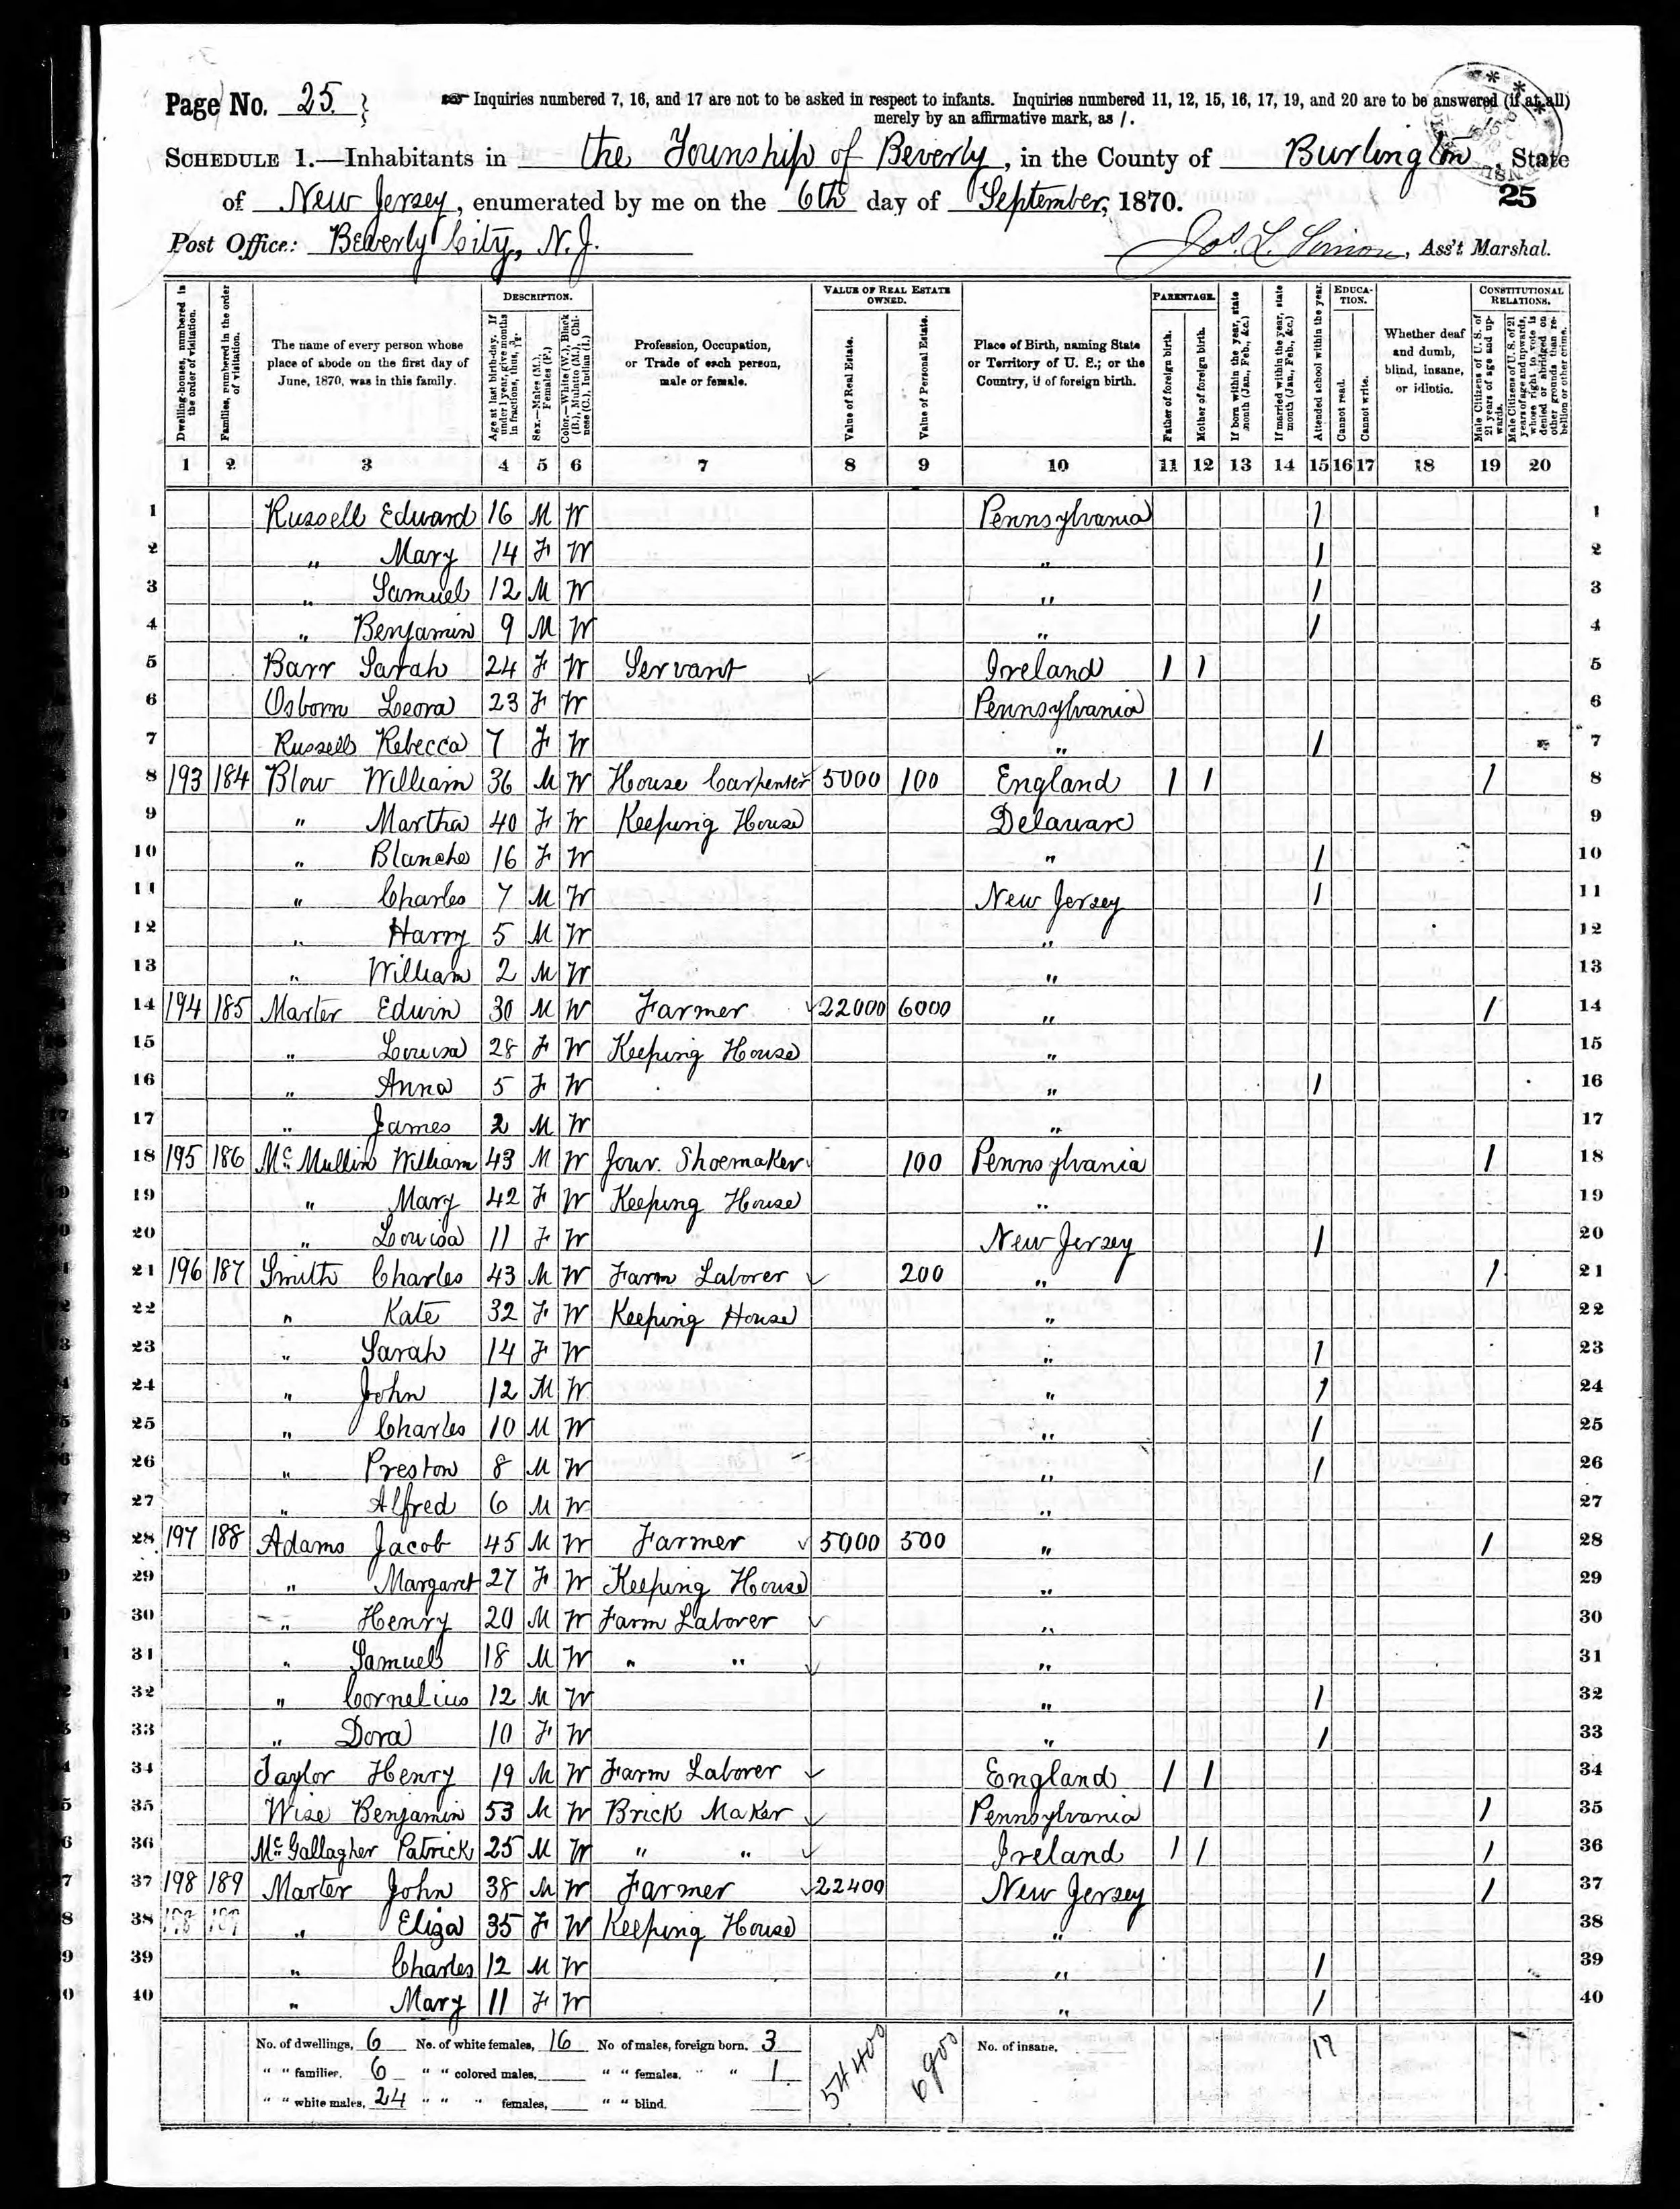 Page No. 25. Inquiries numbered 7, 16, and 17 are not to be asked in respect to infants. Inquiries numbered 11, 12, 15, 16, 17, 19, and 20 are to be answered (if at all)
merely by an affirmative mark, as /.
SCHEDULE 1.—Inhabitants in the Township of Beverly, in the County of Burlington, State
of New Jersey, enumerated by me on the 6th day of September, 1870. 25
Post Office: Beverly City, N. J. Jos. L. , Ass't Marshal.
Dwelling-houses, numbered in the order of visitation.
Families, numbered in the order of visitation.
The name of every person whose place of abode on the first day of June, 1870, was in this family.
DESCRIPTION.
Age at last birth-day. If under 1 year, give months in fractions, thus, 3/12.
Sex.—Males (M.), Females (F.)
Color.—White (W.), Black (B.), Mulatto (M.), Chinese (C.), Indian (I.)
Profession, Occupation, or Trade of each person, male or female.
VALUE OF REAL ESTATE OWNED.
Value of Real Estate.
Value of Personal Estate.
Place of Birth, naming State or Territory of U. S.; or the Country, if of foreign birth.
PARENTAGE.
Father of foreign birth.
Mother of foreign birth.
If born within the year, state month (Jan., Feb., &c.)
If married within the year, state month (Jan., Feb., &c.)
Attended school within the year.
EDUCATION.
Cannot read.
Cannot write.
Whether deaf and dumb, blind, insane, or idiotic.
CONSTITUTIONAL RELATIONS.
Male Citizens of U. S. of 21 years of age and upwards.
Male Citizens of U. S. of 21 years of age and upwards, whose right to vote is denied or abridged on other grounds than rebellion or other crime.
1 2 3 4 5 6 7 8 9 10 11 12 13 14 15 16 17 18 19 20
1 Russell Edward 16 M W Pennsylvania 1 1
2 " Mary 14 F W " 1 2
3 " Samuel 12 M W " 1 3
4 " Benjamin 9 M W " 1 4
5 Barr Sarah 24 F W Servant Ireland 1 1 5
6 Osborn Leora 23 F W Pennsylvania 6
7 Russell Rebecca 7 F W " 1 7
8 193 184 Blow William 36 M W House Carpenter 5000 100 England 1 1 1 8
9 " Martha 40 F W Keeping House Delaware 9
10 " Blanche 16 F W " 1 10
11 " Charles 7 M W New Jersey 1 11
12 " Harry 5 M W " 12
13 " William 2 M W " 13
14 194 185 Marter Edwin 30 M W Farmer 22000 6000 " 1 14
15 " Louisa 28 F W Keeping House " 15
16 " Anna 5 F W " 1 16
17 " James 2 M W " 17
18 195 186 McMullin William 43 M W Jour. Shoemaker 100 Pennsylvania 1 18
19 " Mary 42 F W Keeping House " 19
20 " Louisa 11 F W New Jersey 1 20
21 196 187 Smith Charles 43 M W Farm Laborer 200 " 1 21
22 " Kate 32 F W Keeping House " 22
23 " Sarah 14 F W " 1 23
24 " John 12 M W " 1 24
25 " Charles 10 M W " 1 25
26 " Preston 8 M W " 1 26
27 " Alfred 6 M W " 27
28 197 188 Adams Jacob 45 M W Farmer 5000 500 " 1 28
29 " Margaret 27 F W Keeping House " 29
30 " Henry 20 M W Farm Laborer " 30
31 " Samuel 18 M W " " " 31
32 " Cornelius 12 M W " 1 32
33 " Dora 10 F W " 1 33
34 Taylor Henry 19 M W Farm Laborer England 1 1 34
35 Wise Benjamin 53 M W Brick Maker Pennsylvania 1 35
36 McGallagher Patrick 25 M W " " Ireland 1 1 1 36
37 198 189 Marter John 38 M W Farmer 22400 New Jersey 1 37
38 198 189 " Eliza 35 F W Keeping House " 38
39 " Charles 12 M W " 1 39
40 " Mary 11 F W " 1 40
No. of dwellings, 6 No. of white females, 16 No of males, foreign born, 3 54400 6900 No. of insane, 17
" " families, 6 " " colored males, " " females, " " 1
" " white males, 24 " " " females, " " blind.